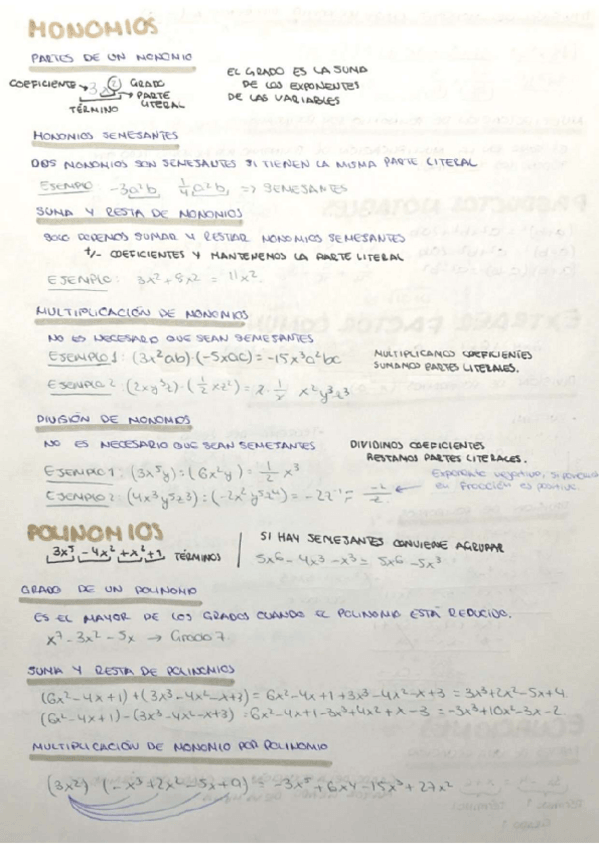 MONOMIOS
PARTES DE UN MONOMIO
COEFICIENTE → 3x² GRADO
PARTE
LITERAL
TÉRMINO
EL GRADO ES LA SUMA
DE LOS EXPONENTES
DE LAS VARIABLES
MONOMIOS SEMEJANTES
DOS MONOMIOS SON SEMEJANTES SI TIENEN LA MISMA PARTE LITERAL
EJEMPLO -3a²b, 1/4 a²b, => SEMEJANTES
SUMA Y RESTA DE MONOMIOS
SOLO PODEMOS SUMAR Y RESTAR MONOMIOS SEMEJANTES
+/- COEFICIENTES Y MANTENEMOS LA PARTE LITERAL
EJEMPLO: 3x² + 8x² = 11x²
MULTIPLICACIÓN DE MONOMIOS
NO ES NECESARIO QUE SEAN SEMEJANTES
EJEMPLO 1: (3x²ab)·(-5xac) = -15x³a²bc
MULTIPLICAMOS COEFICIENTES
SUMAMOS PARTES LITERALES.
EJEMPLO 2: (2xy³z)·(1/2 xz²) = x²y³z³
DIVISIÓN DE MONOMIOS
NO ES NECESARIO QUE SEAN SEMEJANTES
DIVIDIMOS COEFICIENTES
RESTAMOS PARTES LITERALES.
EJEMPLO 1: (3x⁵y):(6x²y) = 1/2 x³
Exponente negativo, si ponemos
en fracción es positivo.
EJEMPLO 2: (4x³y⁵z³):(-2x³y⁵z⁴) = -2z⁻¹ = -2/z
POLINOMIOS
3x⁵ - 4x² + x² + 1 TÉRMINOS
SI HAY SEMEJANTES CONVIENE AGRUPAR
5x⁶ - 4x³ - x³ = 5x⁶ - 5x³
GRADO DE UN POLINOMIO
ES EL MAYOR DE LOS GRADOS CUANDO EL POLINOMIO ESTÁ REDUCIDO.
x⁷ - 3x² - 5x → Grado 7
SUMA Y RESTA DE POLINOMIOS
(6x² - 4x + 1) + (3x³ - 4x² - x + 3) = 6x² - 4x + 1 + 3x³ - 4x² - x + 3 = 3x³ + 2x² - 5x + 4
(6x² - 4x + 1) - (3x³ - 4x² - x + 3) = 6x² - 4x + 1 - 3x³ + 4x² + x - 3 = -3x³ + 10x² - 3x - 2
MULTIPLICACIÓN DE MONOMIO POR POLINOMIO
(3x²) (-x³ + 2x² - 5x + 9) = -3x⁵ + 6x⁴ - 15x³ + 27x²